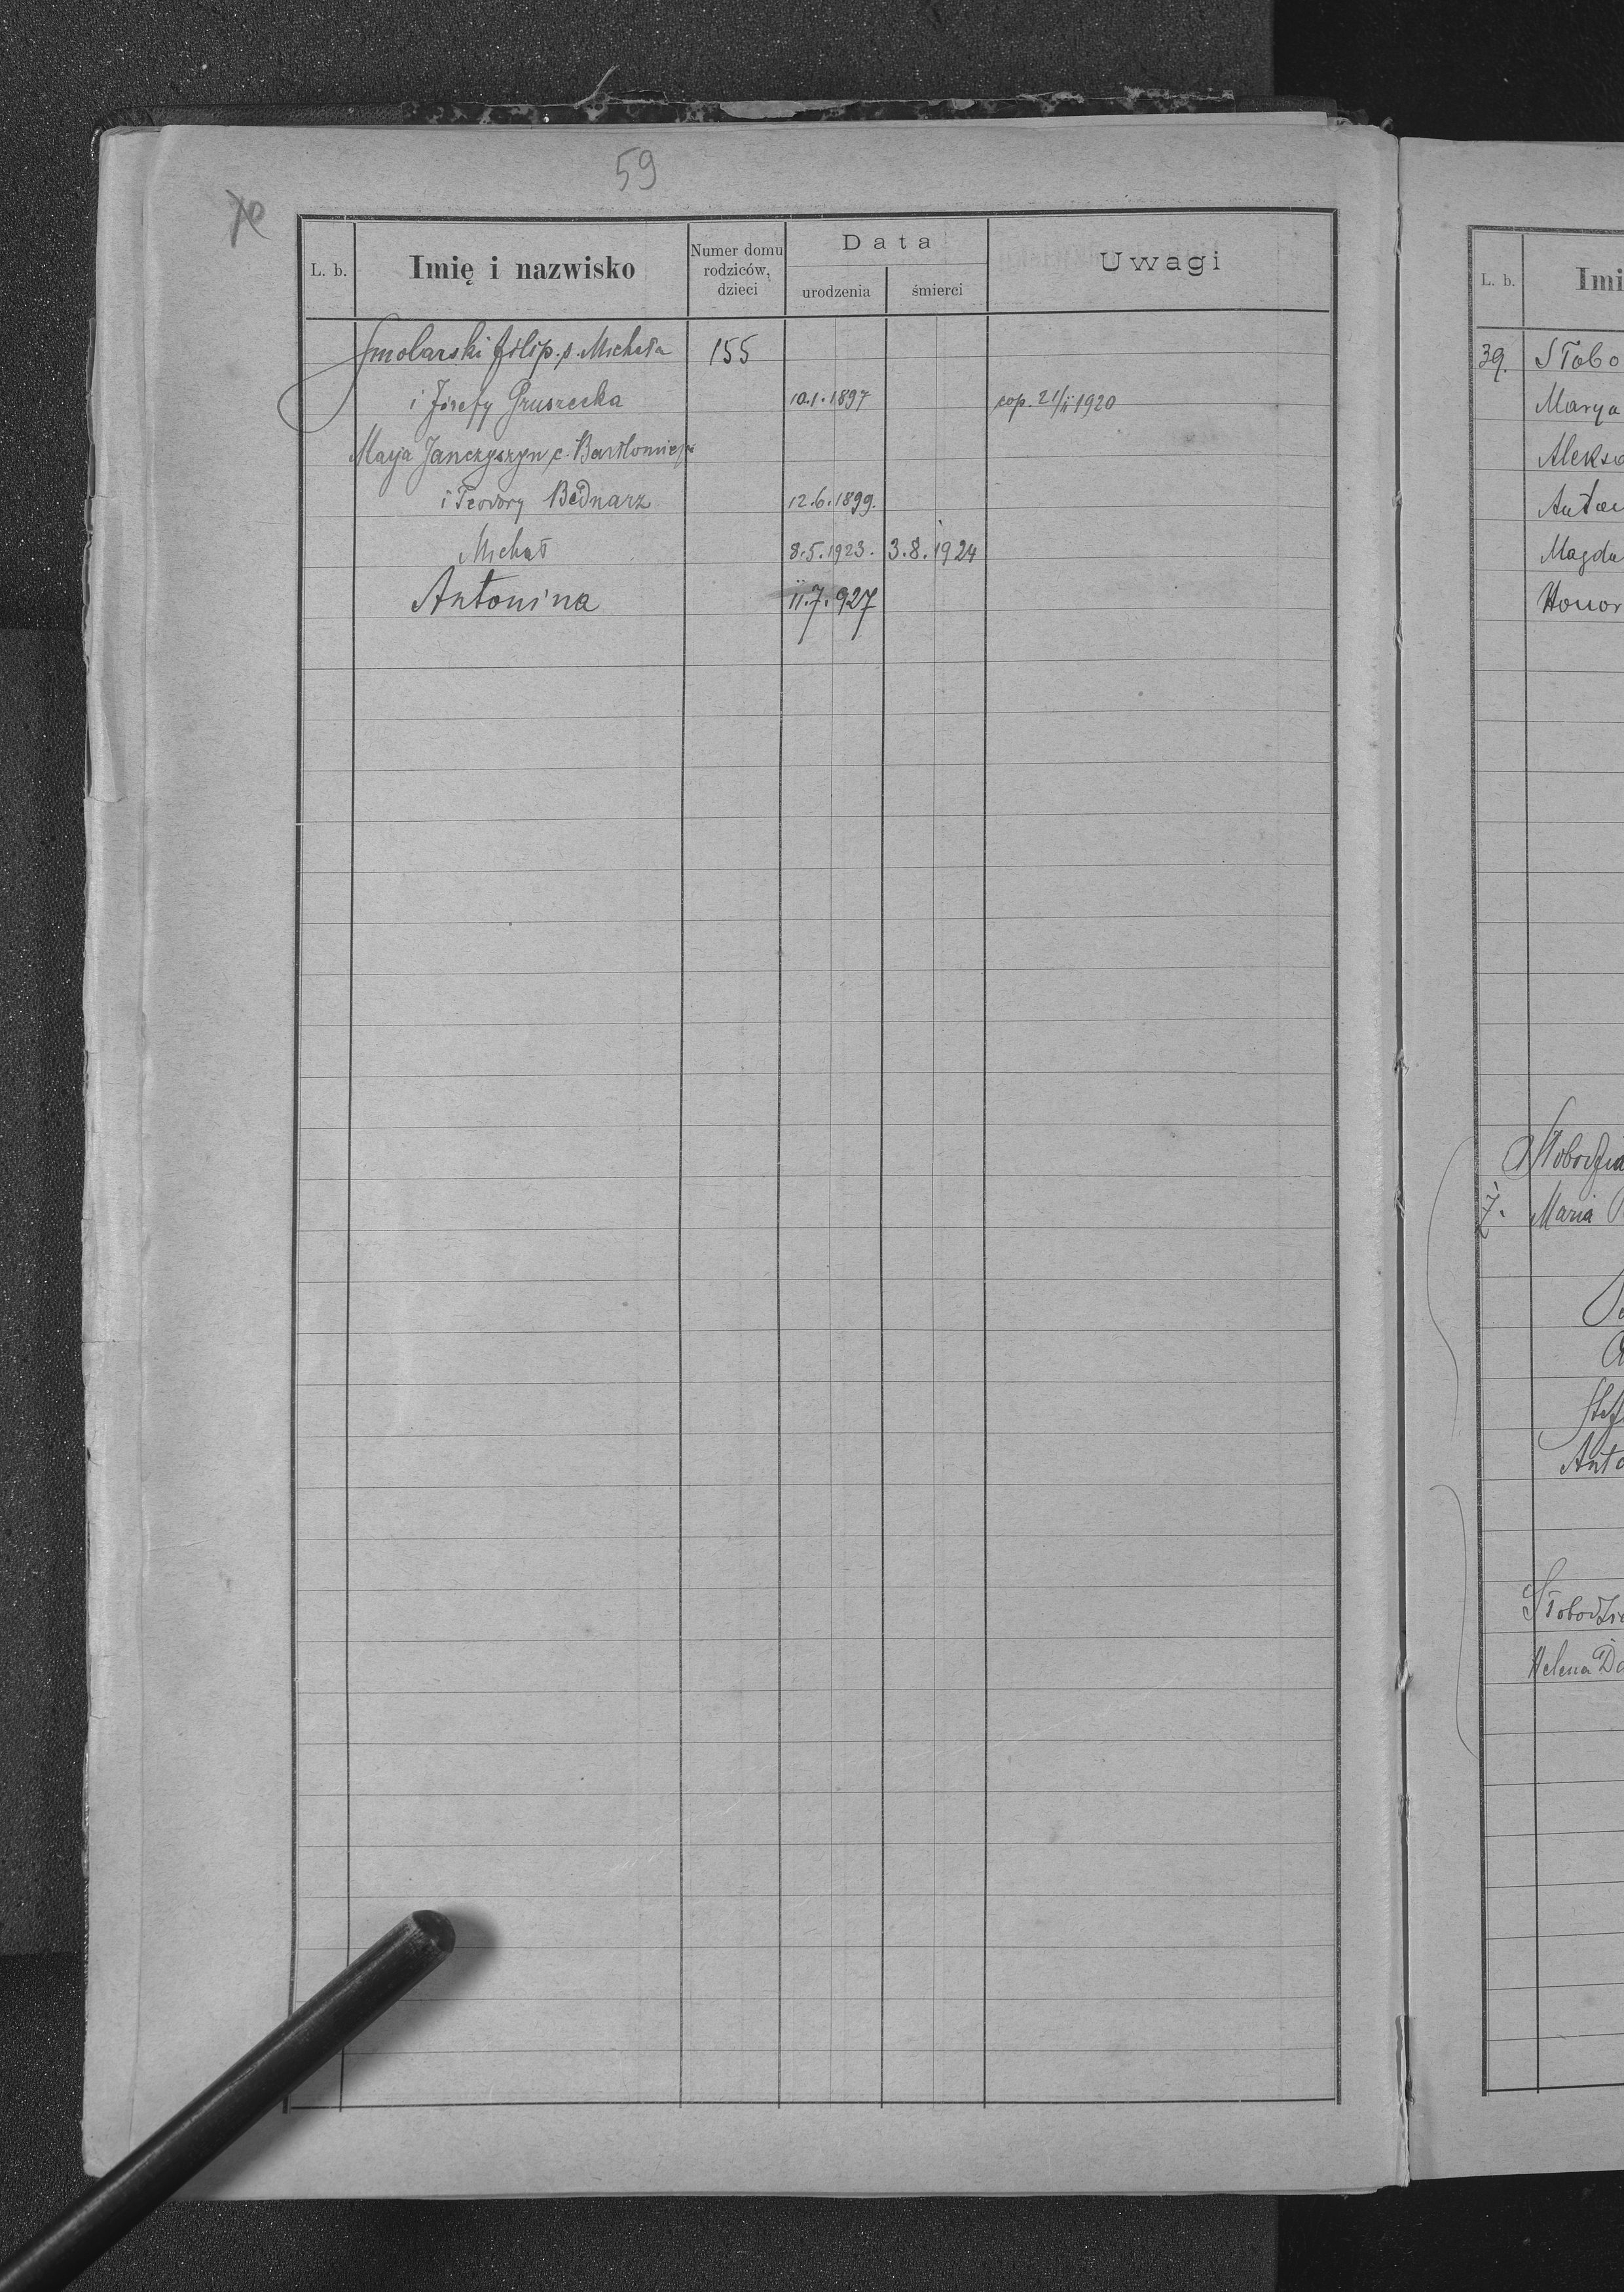 59
L. b. Imię i nazwisko Numer domu rodziców, dzieci Data urodzenia śmierci Uwagi
Smolarski Filip s. Michała 155
i Józefy Gruszecka 10.1.1897 cop. 21/II 1920
Marja Janczyszyn c. Bartłomieja
i Teodory Bednarz 12.6.1899.
Michał 8.5.1923. 3.8.1924
Antonina 11.7.927
L. b. Imi
39. Słobo
Marya
Aleksa
Anton
Magda
Honor
Słobodzia
Ż. Maria
Stef
Anto
Słobodzi
Helena Do